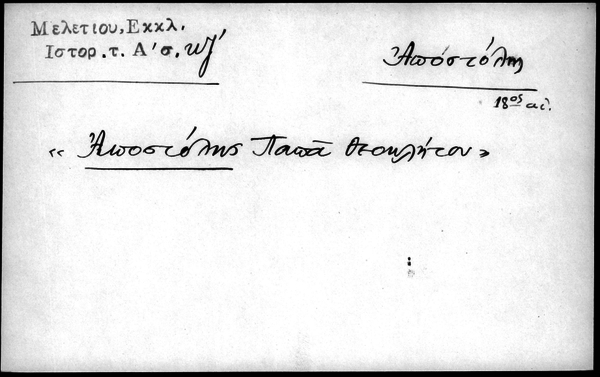 Μελετίου, Εκκλ.
Ιστορ. τ. Α' σ. κζ'
Ἀποστόλης
18ος αἰ.
« Ἀποστόλης Παπᾶ Θεοκλήτου »